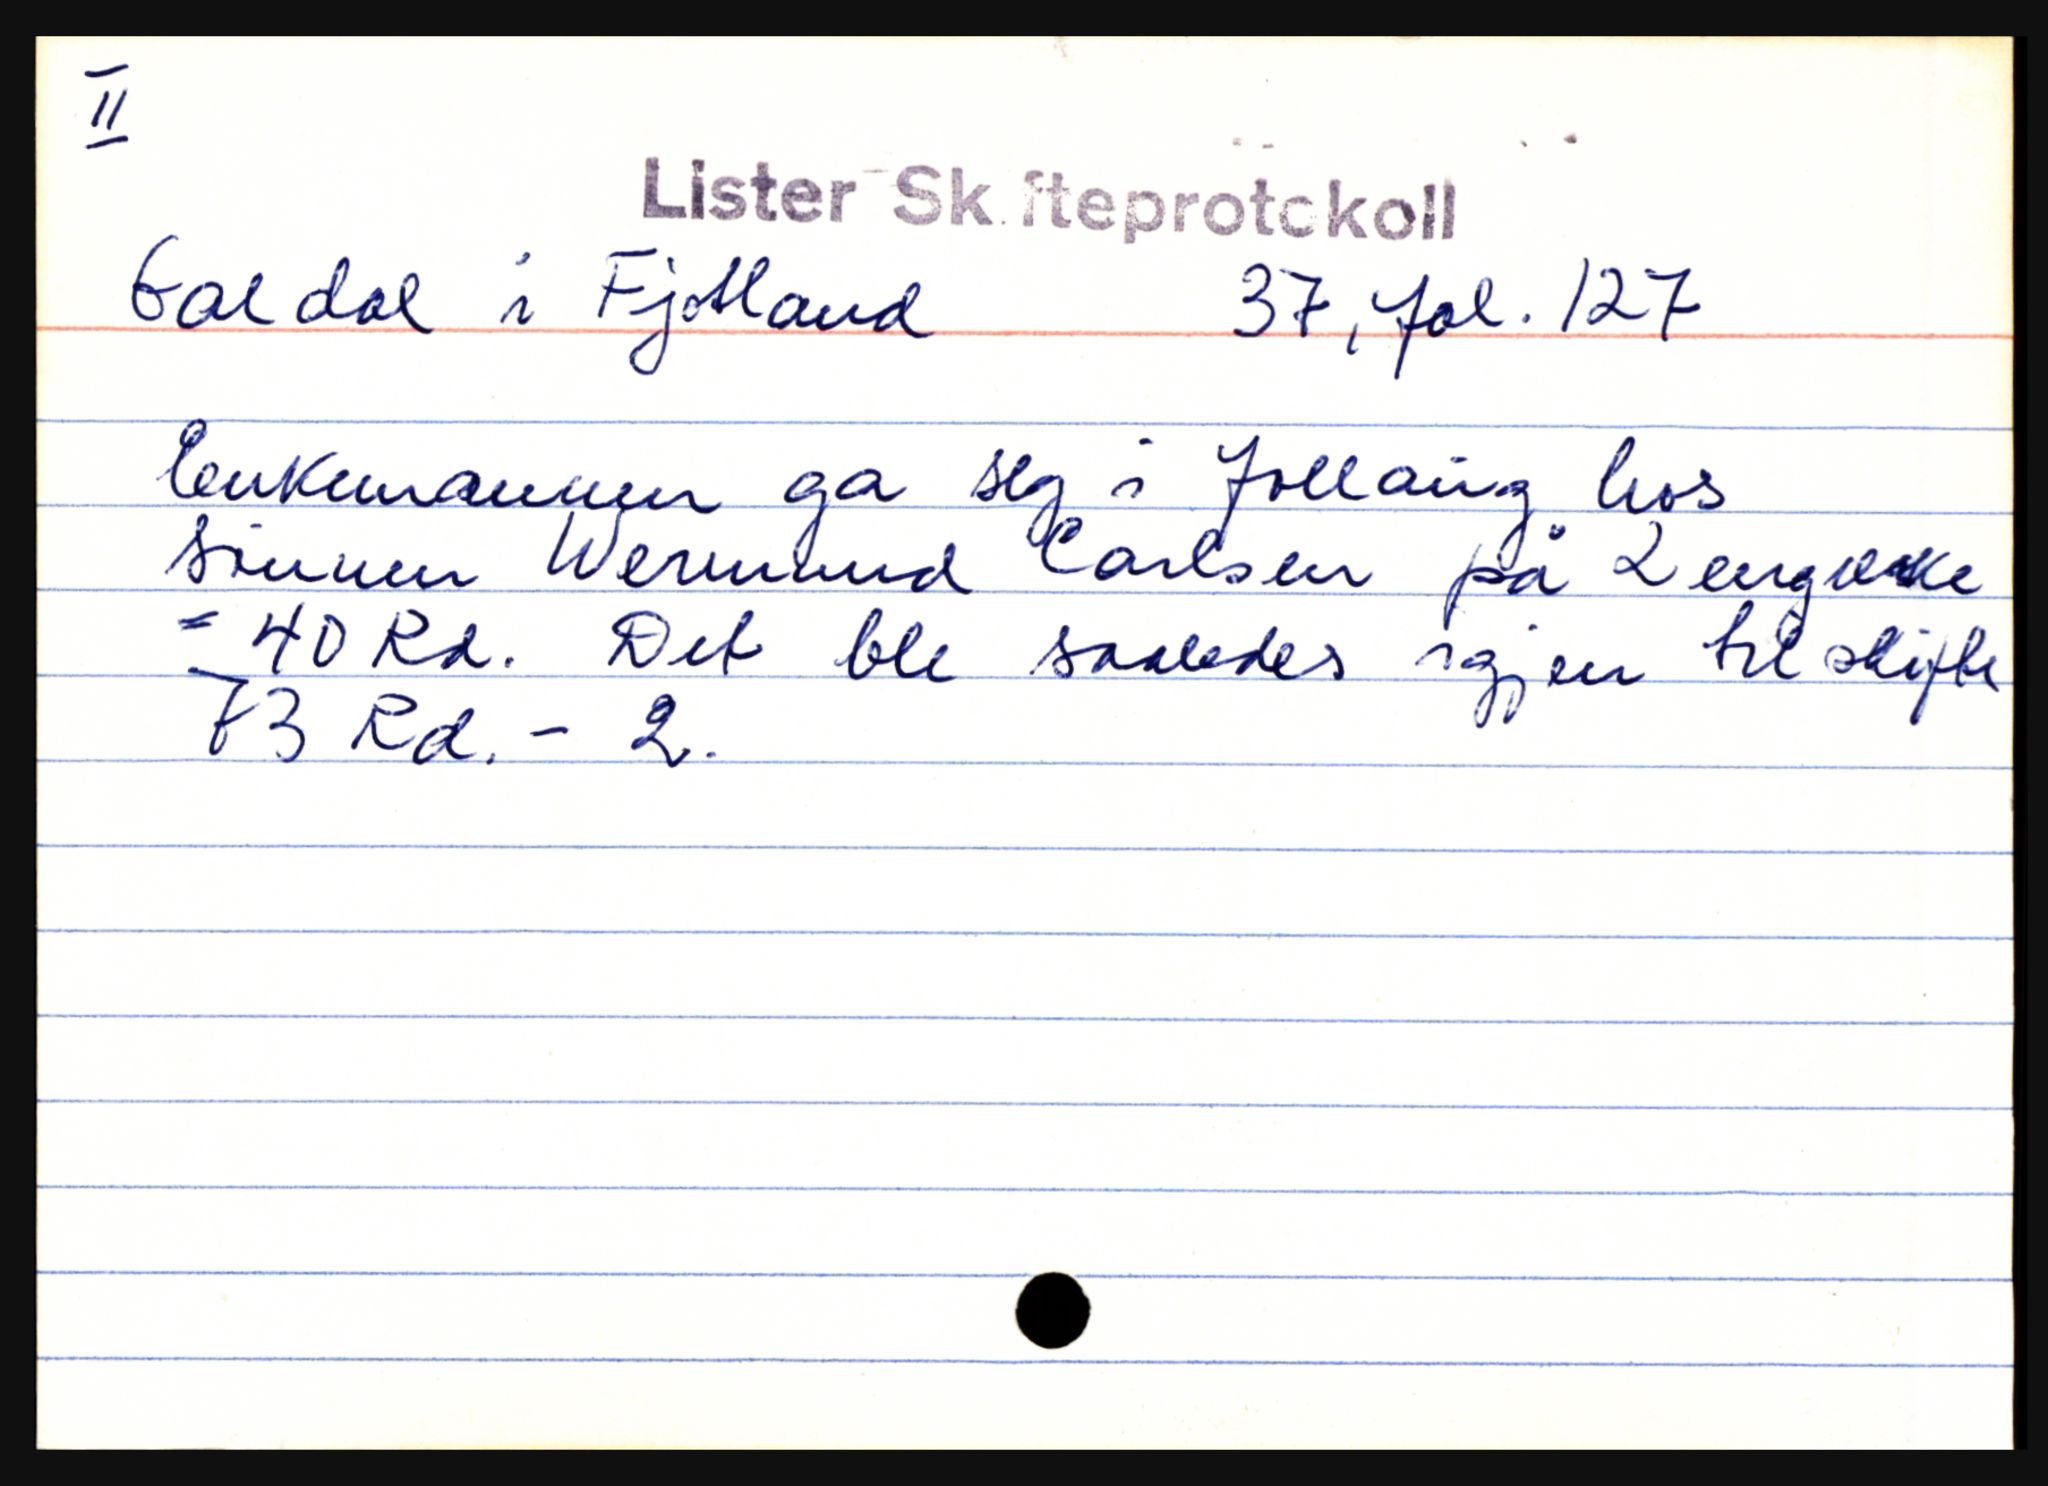 II
Lister Skifteprotokoll
Galdal i Fjotland 37, fol. 127
Enkemannen ga seg i follaug hos
sönnen Wermund Carlsen på Lengvekke
= 40 Rd. Det ble saaledes igjen til skifte
73 Rd. - 2.